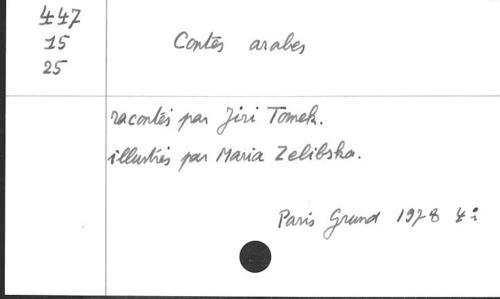 447
15
25
Contes arabes
racontés par Jiri Tomek.
illustrés par Maria Zelibska.
Paris Grund 1978 4: